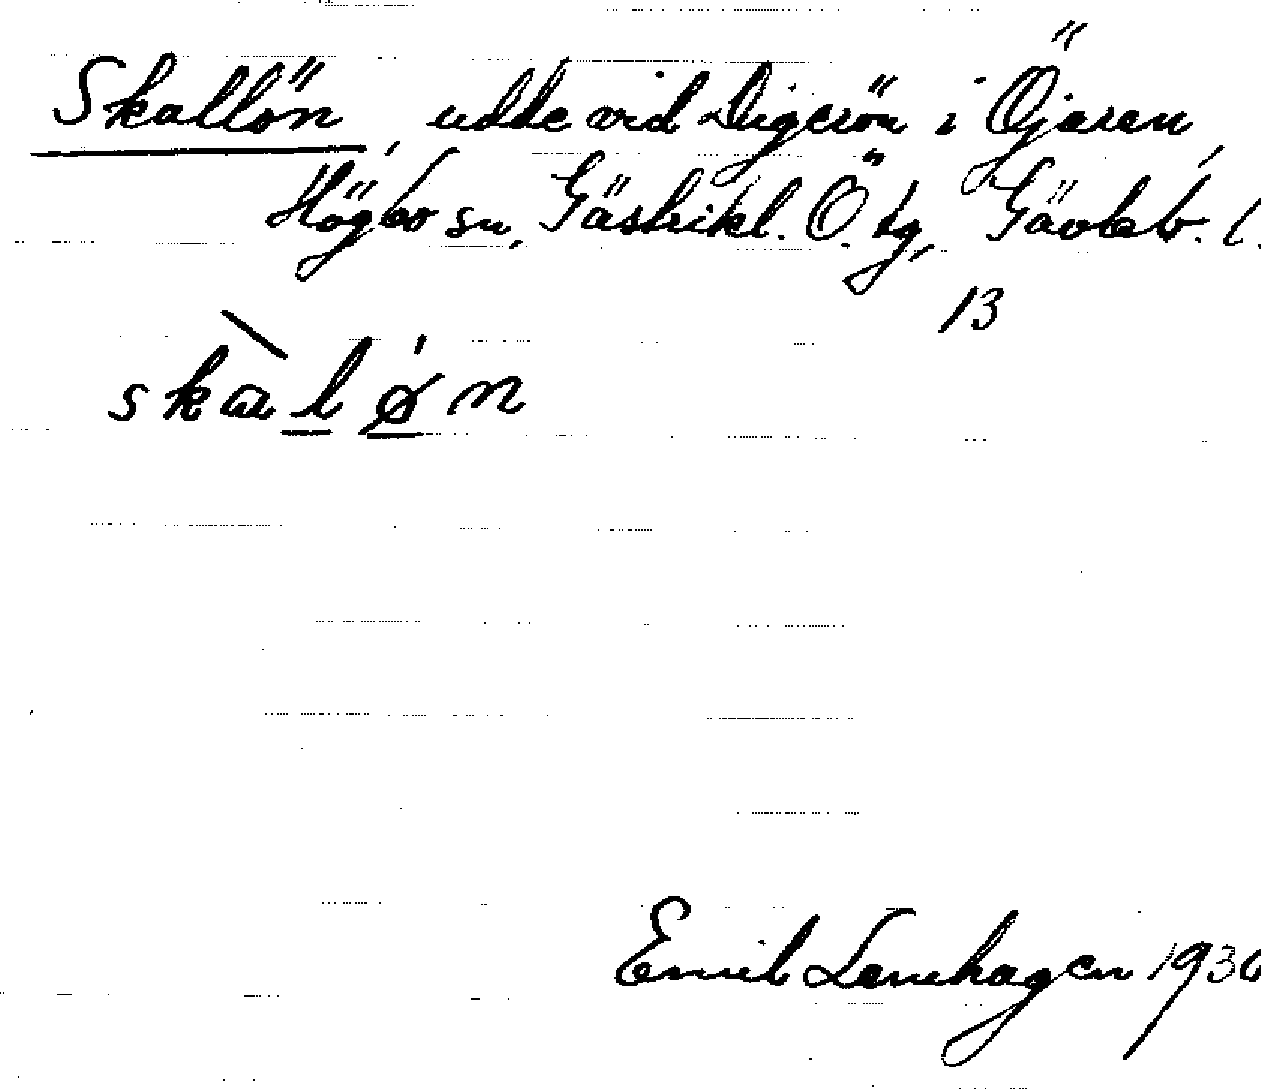 Skallön, udde vid Digerön i Öjaren,
Högbo sn, Gästrikl. Ö. tg, Gävleb. l.
13
skàlø'n
Emil Lenhagen 1930